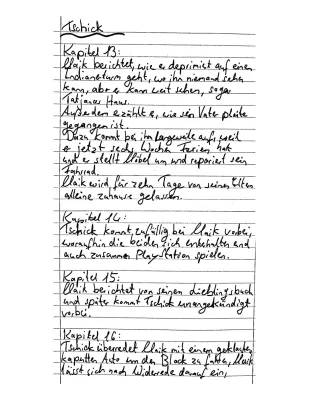 Tschick
Kapitel 13:
Maik berichtet, wie er deprimiert auf einen
Indianerturm geht, wo ihn niemand sehen
kann, aber er kann weit sehen, sogar
Tatjanas Haus.
Außerdem erzählt er, wie sein Vater pleite
gegangen ist.
Dazu kommt bei ihm Langeweile auf, weil
er jetzt sechs Wochen Ferien hat
und er stellt Möbel um und repariert sein
Fahrrad.
Maik wird für zehn Tage von seinen Eltern
alleine zuhause gelassen.
Kapitel 14:
Tschick kommt zufällig bei Maik vorbei,
woraufhin die beiden sich unterhalten und
auch zusammen Playstation spielen.
Kapitel 15:
Maik berichtet von seinen Lieblingsbuch
und später kommt Tschick unangekündigt
vorbei.
Kapitel 16:
Tschick überredet Maik mit einem geklauten,
kaputten Auto um den Block zu fahren, Maik
lässt sich nach Widerrede darauf ein,